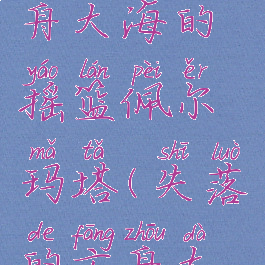 舟大海的
yáo lán pèi ěr
摇篮佩尔
mǎ tǎ shī luò
玛塔(失落
de fāng zhōu dà
的方舟大